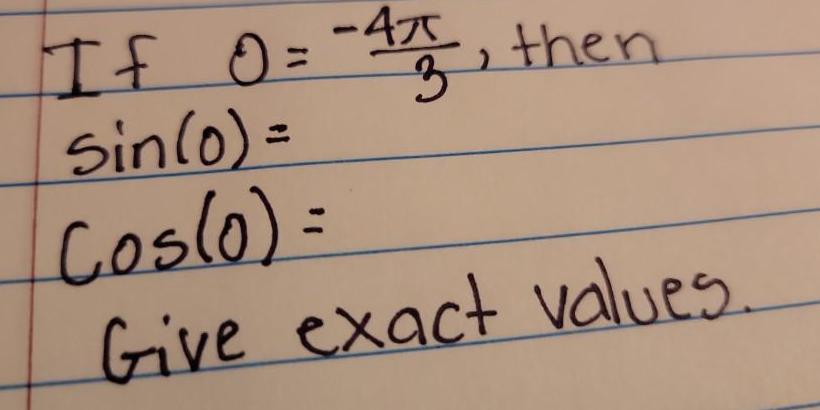 If 0 = -4π/3, then
sin(0) =
Cos(0) =
Give exact values.